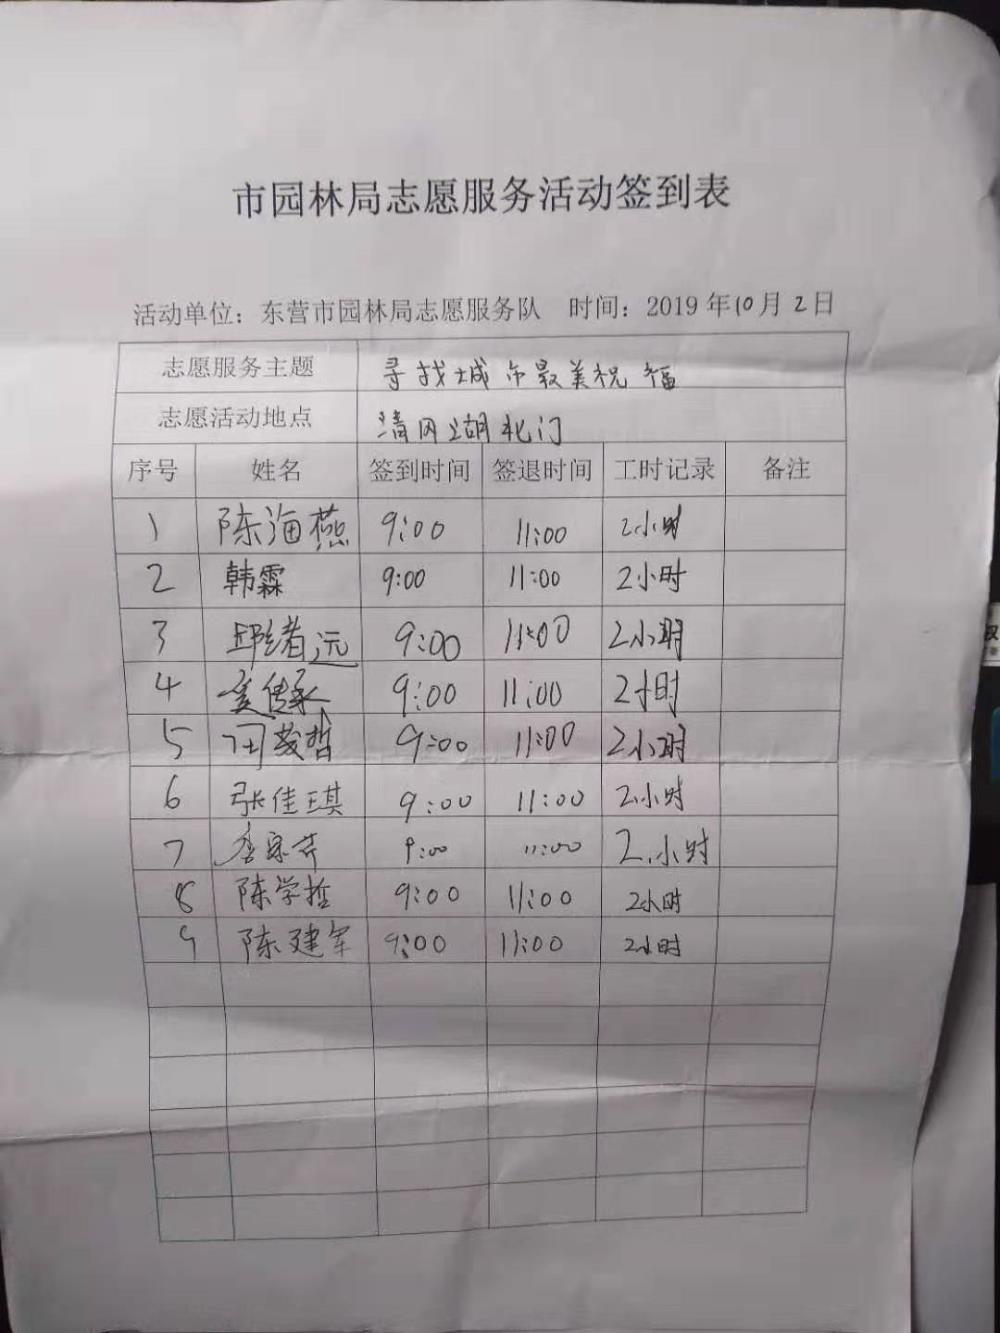 市园林局志愿服务活动签到表
活动单位：东营市园林局志愿服务队 时间：2019年10月2日
志愿服务主题 寻找城市最美祝福
志愿活动地点 清风湖北门
序号 姓名 签到时间 签退时间 工时记录 备注
1 陈海燕 9:00 11:00 2小时
2 韩霖 9:00 11:00 2小时
3 邱绪远 9:00 11:00 2小时
4 9:00 11:00 2小时
5 田茂哲 9:00 11:00 2小时
6 张佳琪 9:00 11:00 2小时
7 9:00 11:00 2小时
8 陈学哲 9:00 11:00 2小时
9 陈建军 9:00 11:00 2小时